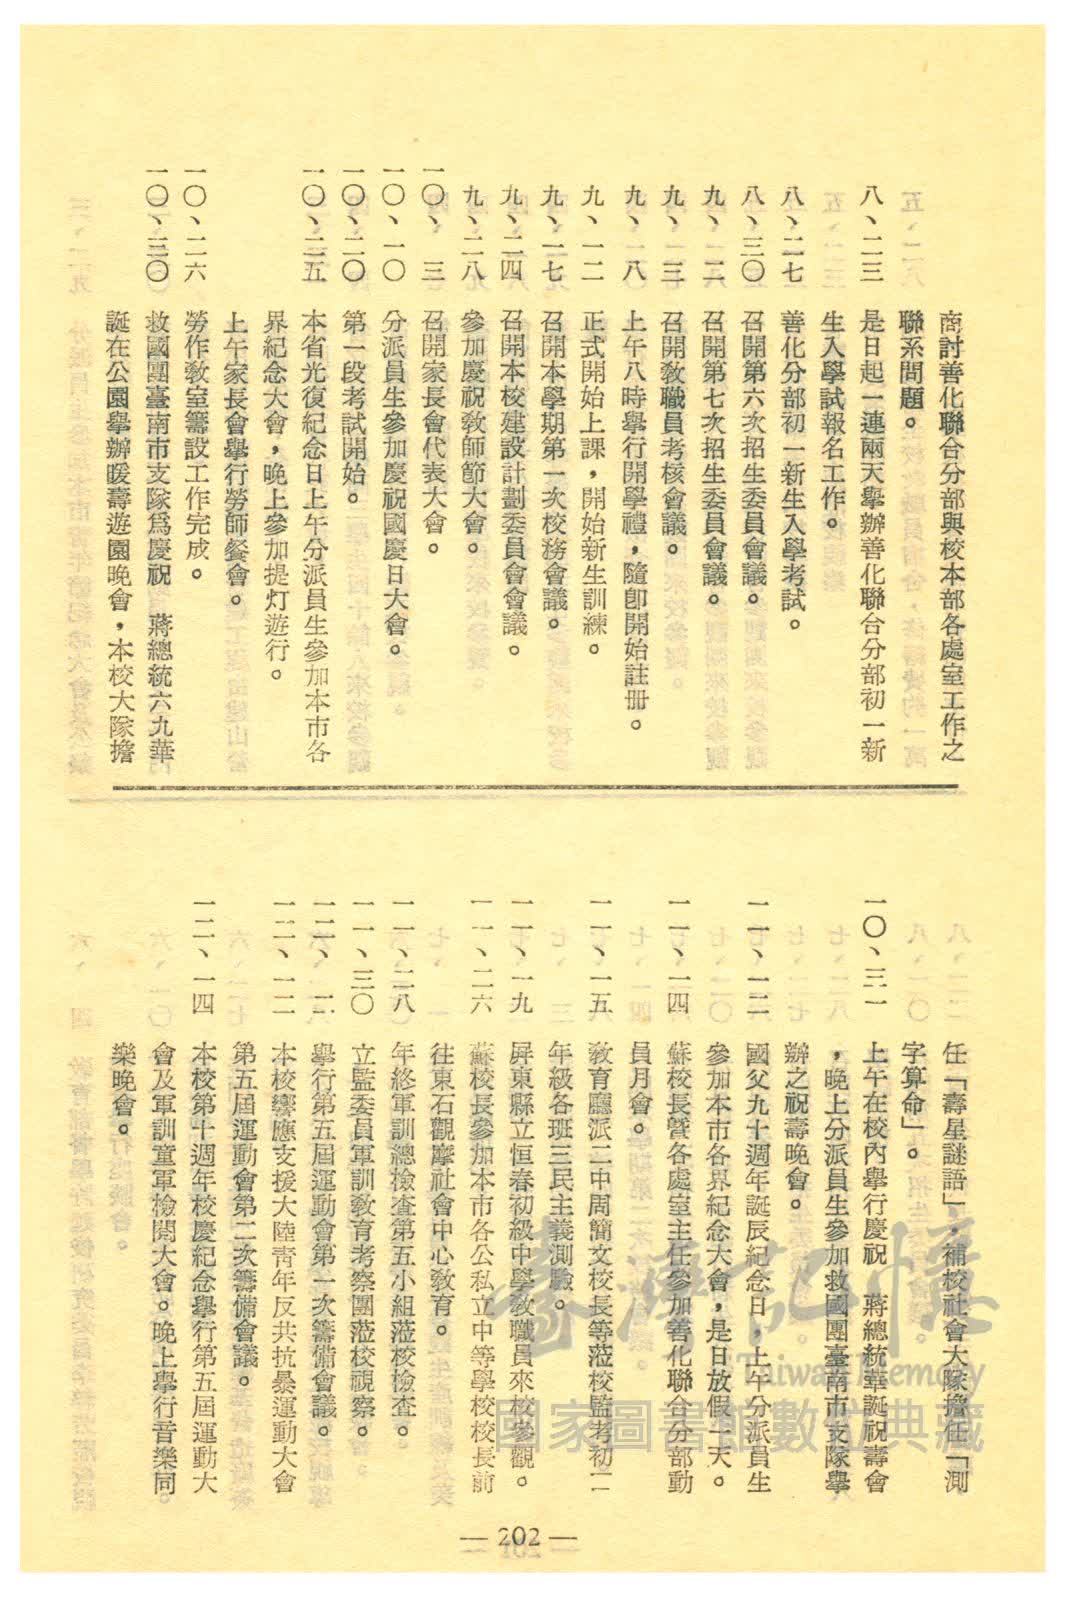 商討善化聯合分部與校本部各處室工作之
聯系問題。
八、二三 是日起一連兩天擧辦善化聯合分部初一新
生入學試報名工作。
八、二七 善化分部初一新生入學考試。
八、三〇 召開第六次招生委員會議。
九、二 召開第七次招生委員會議。
九、三 召開敎職員考核會議。
九、八 上午八時擧行開學禮，隨卽開始註册。
九、一二 正式開始上課，開始新生訓練。
九、一七 召開本學期第一次校務會議。
九、二四 召開本校建設計劃委員會會議。
九、二八 參加慶祝敎師節大會。
一〇、三 召開家長會代表大會。
一〇、一〇 分派員生參加慶祝國慶日大會。
一〇、二〇 第一段考試開始。
一〇、二五 本省光復紀念日上午分派員生參加本市各
界紀念大會，晚上參加提灯遊行。
上午家長會擧行勞師餐會。
一〇、二六 勞作敎室籌設工作完成。
一〇、三〇 救國團臺南市支隊爲慶祝　蔣總統六九華
誕在公園擧辦暖壽遊園晚會，本校大隊擔
任「壽星謎語」，補校社會大隊擔任「測
字算命」。
一〇、三一 上午在校內擧行慶祝　蔣總統華誕祝壽會
，晚上分派員生參加救國團臺南市支隊擧
辦之祝壽晚會。
一一、一二 國父九十週年誕辰紀念日，上午分派員生
參加本市各界紀念大會，是日放假一天。
一一、一四 蘇校長曁各處室主任參加善化聯合分部動
員月會。
一一、一五 敎育廳派二中周簡文校長等蒞校監考初二
年級各班三民主義測驗。
一一、一九 屛東縣立恒春初級中學敎職員來校參觀。
一一、二六 蘇校長參加本市各公私立中等學校校長前
往東石觀摩社會中心敎育。
一一、二八 年終軍訓總檢查第五小組蒞校檢查。
一一、三〇 立監委員軍訓敎育考察團蒞校視察。
一二、二 擧行第五屆運動會第一次籌備會議。
一二、一二 本校響應支援大陸靑年反共抗暴運動大會
第五屆運動會第二次籌備會議。
一二、一四 本校第十週年校慶紀念擧行第五屆運動大
會及軍訓童軍檢閱大會。晚上擧行音樂同
樂晚會。
— 202 —
臺灣記憶
Taiwan Memory
國家圖書館數位典藏